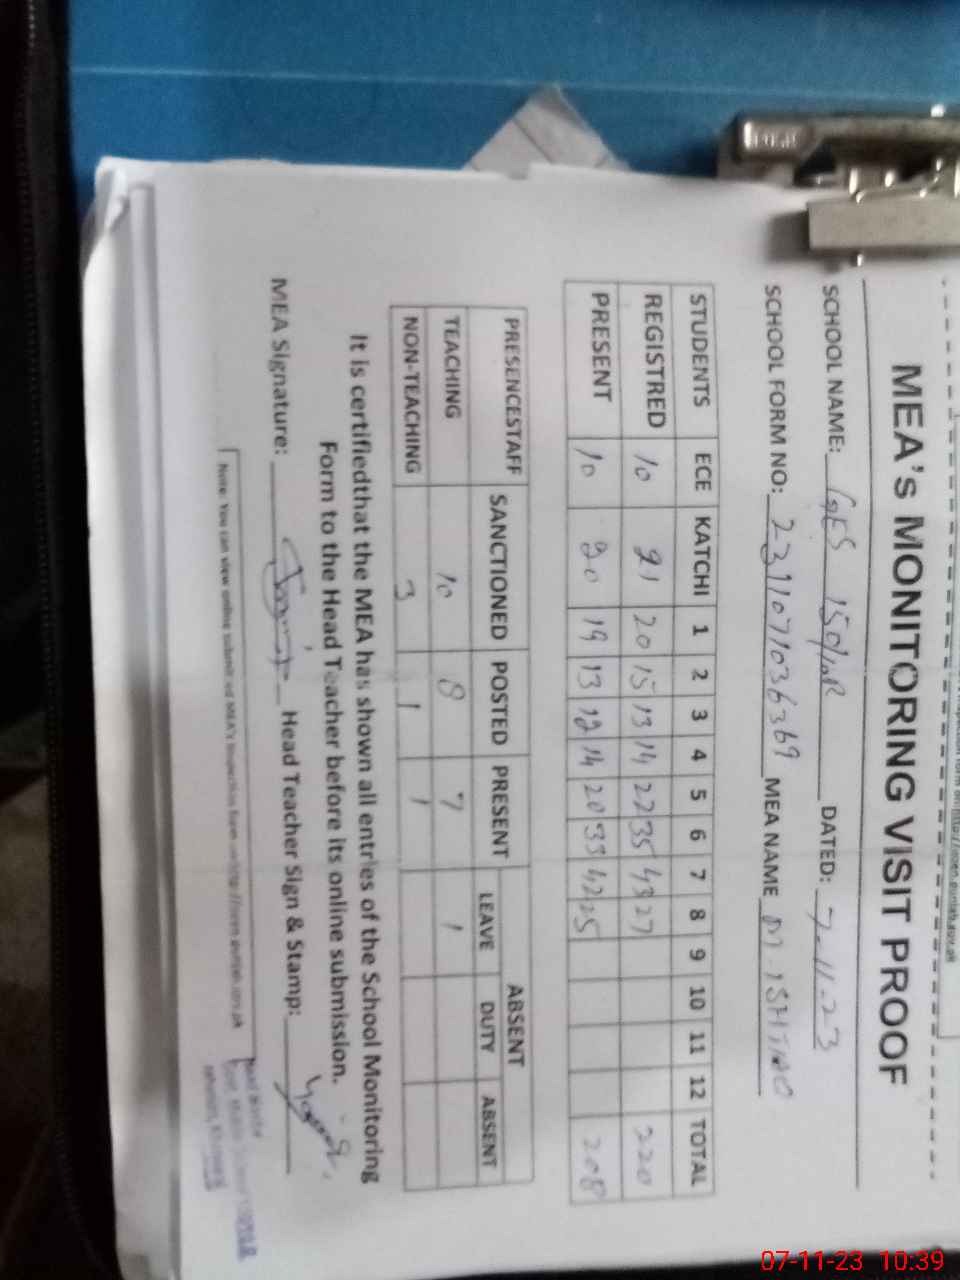 http://open.punjab.gov.pk
MEA's MONITORING VISIT PROOF
SCHOOL NAME: GES DATED: 7-11-23
SCHOOL FORM NO: MEA NAME M.
STUDENTS ECE KATCHI 1 2 3 4 5 6 7 8 9 10 11 12 TOTAL
REGISTRED 10 21 20 15 13 14 22 35 43 27 220
PRESENT 10 20 19 13 12 14 20 33 42 25 208
PRESENCESTAFF SANCTIONED POSTED PRESENT ABSENT
LEAVE DUTY ABSENT
TEACHING 10 8 7 1
NON-TEACHING 3 1 1
It is certifiedthat the MEA has shown all entries of the School Monitoring
Form to the Head Teacher before its online submission.
MEA Signature: Head Teacher Sign & Stamp:
Note: You can view online submitted MEA's Inspection form on http://open.punjab.gov.pk
07-11-23 10:39